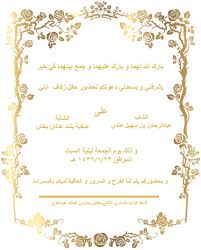 بارك الله لهما و بارك عليهما و جمع بينهما في خير
يشرفني و يسعدني دعوتكم لحضور حفل زفاف ابني
الشاب
على
الشابة
عبدالرحمن بن سهيل
صفية بنت عدنان
و ذلك يوم الجمعة ليلة السبت
الموافق ١٤٣٩/٧/٢٣ هـ
و بحضوركم يتم لنا الفرح و السرور و العاقبة لديكم بالمسرات